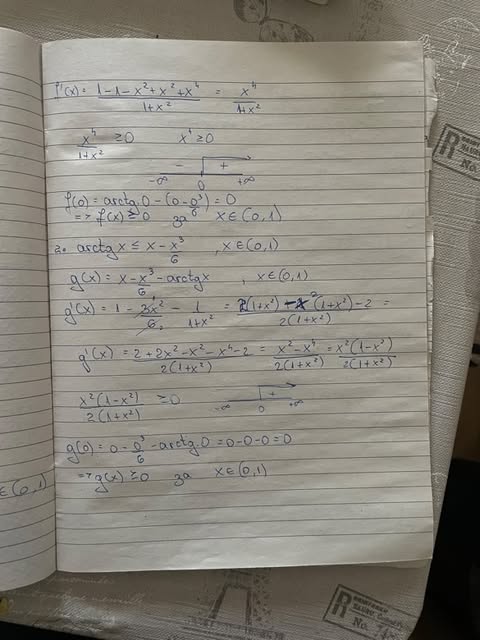 f'(x) = (1-1-x²+x²+x⁴)/(1+x²) = x⁴/(1+x²)
x⁴/(1+x²) ≥0 x⁴≥0
- +
-∞ 0 +∞
f(0) = arctg 0 - (0-0³/6) = 0
=> f(x) ≥ 0 за x∈(0,1)
2. arctg x ≤ x - x³/6 , x∈(0,1)
g(x) = x - x³/6 - arctg x , x∈(0,1)
g'(x) = 1 - 3x²/6 - 1/(1+x²) = (2(1+x²) - x²(1+x²) - 2)/(2(1+x²)) =
g'(x) = (2+2x²-x²-x⁴-2)/(2(1+x²)) = (x²-x⁴)/(2(1+x²)) = x²(1-x²)/(2(1+x²))
x²(1-x²)/(2(1+x²)) ≥0
+
-∞ 0 +∞
g(0) = 0 - 0³/6 - arctg 0 = 0-0-0 = 0
=> g(x) ≥ 0 за x∈(0,1)
∈(0,1)
R
No.
R
No.